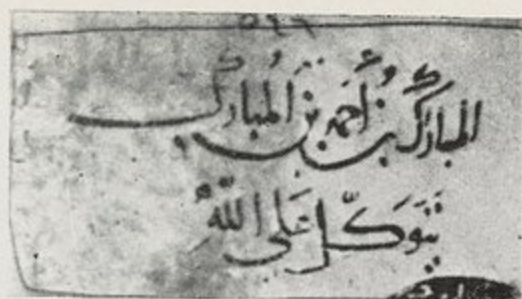 المبارك بن أَحمد بن المُبارك
يَتَوَكَّل عَلَى اللَّه